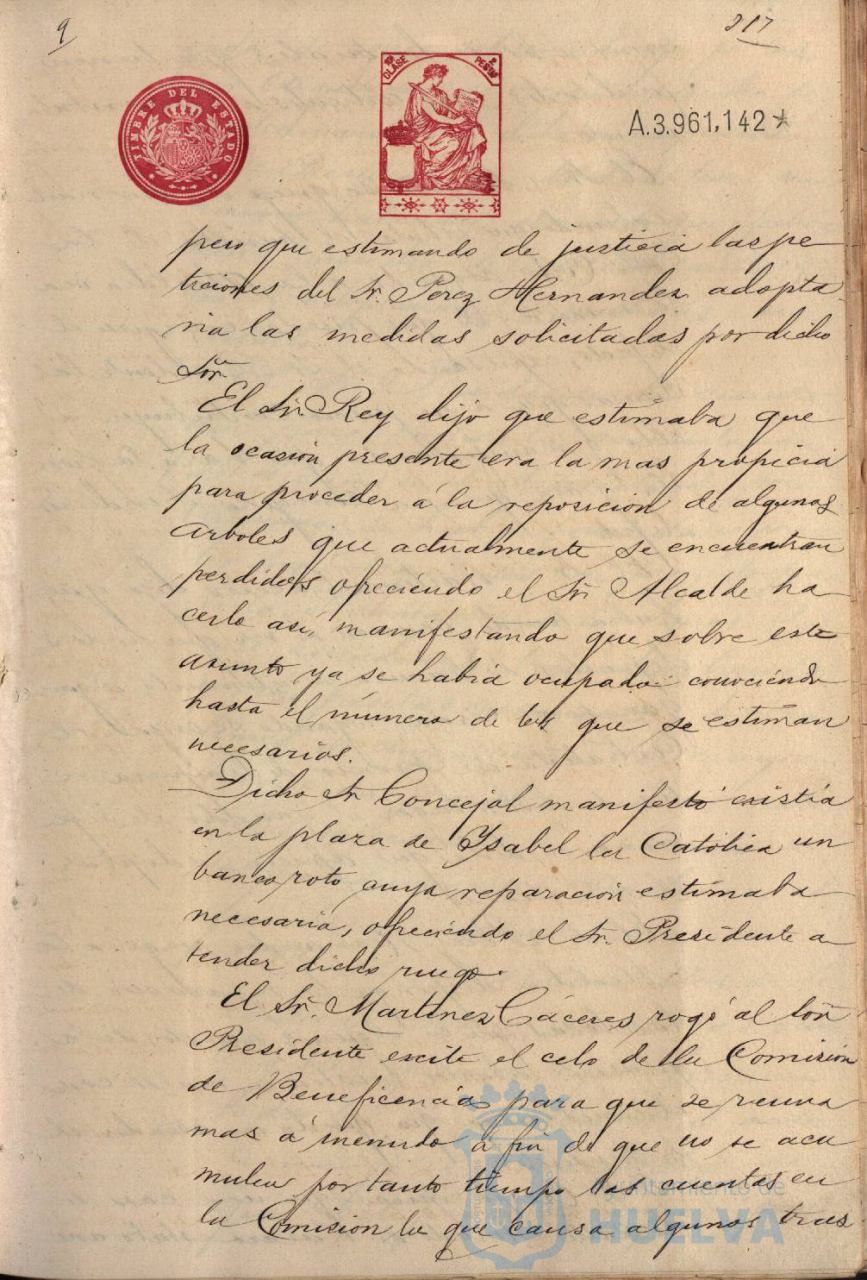 9
217
TIMBRE DEL ESTADO
10ª CLASE 2 PESTAS
A.3.961,142*
pero que estimando de justicia las pe
ticiones del Sr. Perez Hernandez adopta
ria las medidas solicitadas por dicho
Sor.
El Sr. Rey dijo que estimaba que
la ocasión presente era la mas propicia
para proceder á la reposicion de algunos
arboles que actualmente se encuentran
perdidos ofreciendo el Sr. Alcalde ha
cerlo así, manifestando que sobre este
asunto ya se habia ocupado conociendo
hasta el número de los que se estiman
necesarios.
Dicho Sr Concejal manifestó existia
en la plaza de Ysabel la Católica un
banco roto cuya reparación estimaba
necesaria, ofreciendo el Sr. Presidente a
tender dicho ruego.
El Sr. Martinez Cáceres rogó al Sor
Presidente excite el celo de la Comisión
de Beneficencia para que se reuna
mas á menudo á fin de que no se acu
mulen por tanto tiempo las cuentas en
la Comision lo que causa algunos tras
Ayuntamiento de
HUELVA